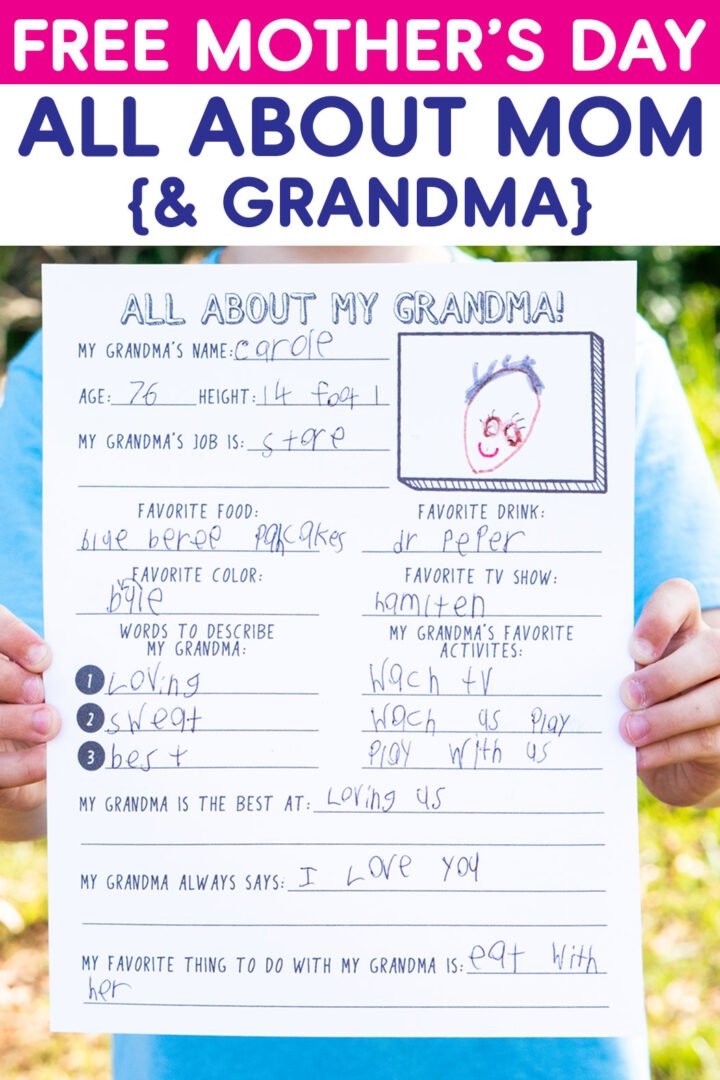 FREE MOTHER'S DAY
ALL ABOUT MOM
{& GRANDMA}
ALL ABOUT MY GRANDMA!
MY GRANDMA'S NAME: carole
AGE: 76 HEIGHT: 14 foot 1
MY GRANDMA'S JOB IS: store
FAVORITE FOOD: FAVORITE DRINK:
blue beree pancakes dr PePer
FAVORITE COLOR: FAVORITE TV SHOW:
hamilten
WORDS TO DESCRIBE MY GRANDMA'S FAVORITE
MY GRANDMA: ACTIVITES:
1 Loving Wach tv
2 sweat Wach us Play
3 best Play with us
MY GRANDMA IS THE BEST AT: Loving us
MY GRANDMA ALWAYS SAYS: I Love you
MY FAVORITE THING TO DO WITH MY GRANDMA IS: eat with
her